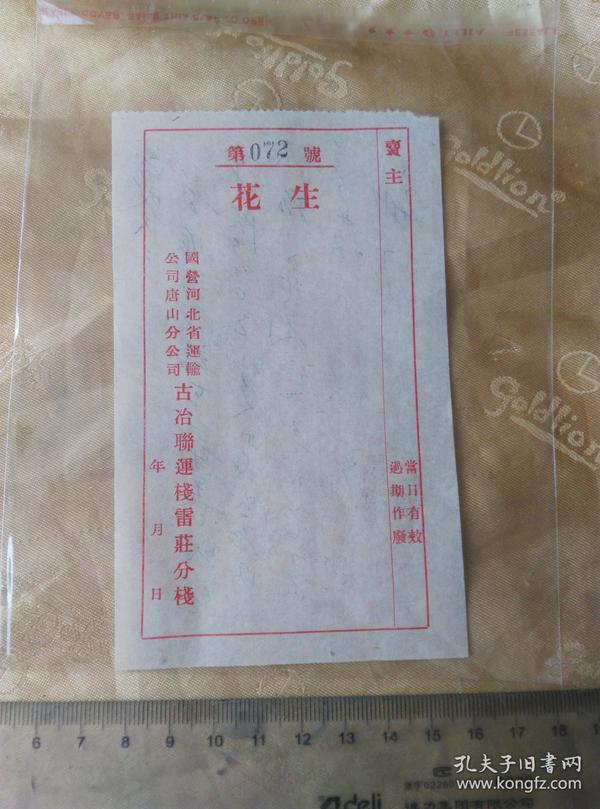 第072號
花生
賣主
當日有效
過期作廢
國營河北省運輸
公司唐山分公司
古冶聯運棧雷莊分棧
年月日
Goldlion
Goldlion®
Goldlion
6 7 8 9 10 11 12 13 14 15 16 17 18
deli
孔夫子旧书网
www.kongfz.com